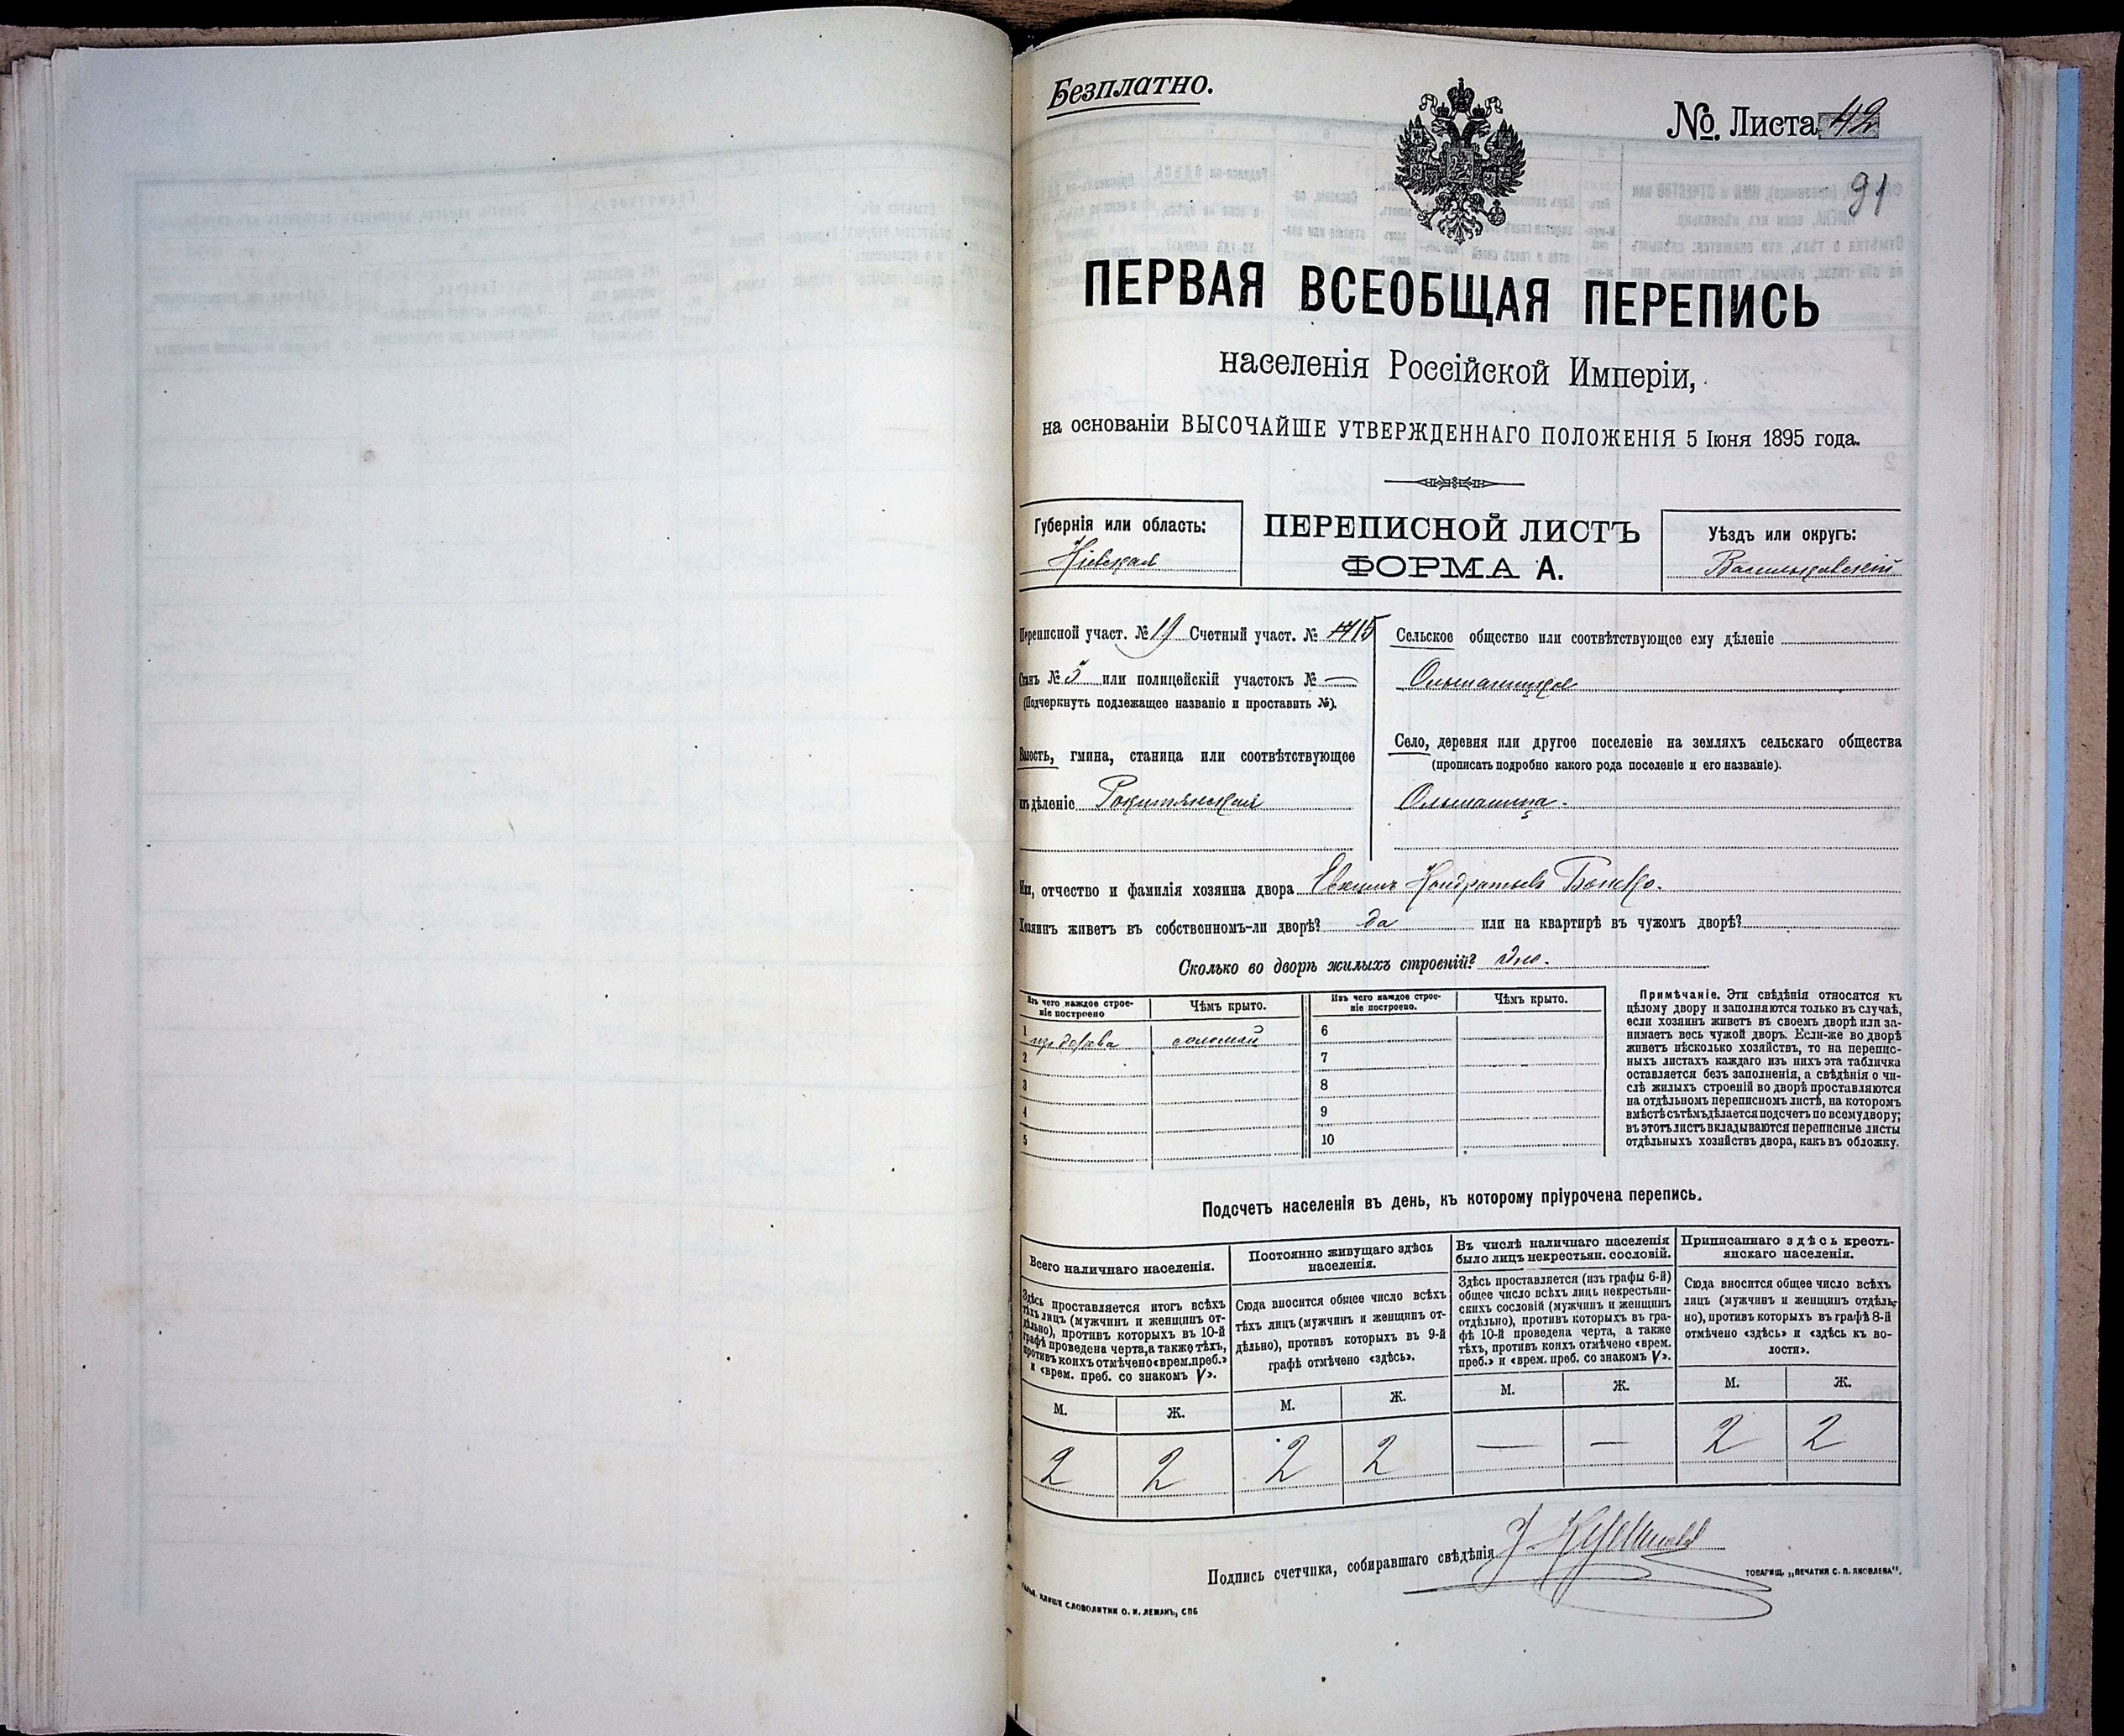 Безплатно.
№. Листа 42
91
ПЕРВАЯ ВСЕОБЩАЯ ПЕРЕПИСЬ
населенія Россійской Имперіи,
на основаніи ВЫСОЧАЙШЕ УТВЕРЖДЕННАГО ПОЛОЖЕНІЯ 5 Іюня 1895 года.
Губернія или область:
Кіевская
ПЕРЕПИСНОЙ ЛИСТЪ
ФОРМА А.
Уѣздъ или округъ:
Васильковскій
Переписной участ. № 19 Счетный участ. № 15
Станъ № 5 или полицейскій участокъ № —
(Подчеркнуть подлежащее названіе и проставить №).
Волость, гмина, станица или соотвѣтствующее
имъ дѣленіе Рокитянская
Сельское общество или соотвѣтствующее ему дѣленіе
Ольшаницкое
Село, деревня или другое поселеніе на земляхъ сельскаго общества
(прописать подробно какого рода поселеніе и его названіе).
Ольшаница.
Имя, отчество и фамилія хозяина двора Кондратьевъ
Хозяинъ живетъ въ собственномъ-ли дворѣ? да или на квартирѣ въ чужомъ дворѣ?
Сколько во дворѣ жилыхъ строеній?
Изъ чего каждое строе-
ніе построено
Чѣмъ крыто.
Изъ чего каждое строе-
ніе построено.
Чѣмъ крыто.
1 изъ дерева соломой 6
2 7
3 8
4 9
5 10
Примѣчаніе. Эти свѣдѣнія относятся къ
цѣлому двору и заполняются только въ случаѣ,
если хозяинъ живетъ въ своемъ дворѣ или за-
нимаетъ весь чужой дворъ. Если-же во дворѣ
живетъ нѣсколько хозяйствъ, то на перепис-
ныхъ листахъ каждаго изъ нихъ эта табличка
оставляется безъ заполненія, а свѣдѣнія о чи-
слѣ жилыхъ строеній во дворѣ проставляются
на отдѣльномъ переписномъ листѣ, на которомъ
вмѣстѣ съ тѣмъ дѣлается подсчетъ по всему двору;
въ этотъ листъ вкладываются переписные листы
отдѣльныхъ хозяйствъ двора, какъ въ обложку.
Подсчетъ населенія въ день, къ которому пріурочена перепись.
Всего наличнаго населенія.
Здѣсь проставляется итогъ всѣхъ
тѣхъ лицъ (мужчинъ и женщинъ от-
дѣльно), противъ которыхъ въ 10-й
графѣ проведена черта, а также тѣхъ,
противъ коихъ отмѣчено «врем. преб.»
и «врем. преб. со знакомъ V».
Постоянно живущаго здѣсь
населенія.
Сюда вносится общее число всѣхъ
тѣхъ лицъ (мужчинъ и женщинъ от-
дѣльно), противъ которыхъ въ 9-й
графѣ отмѣчено «здѣсь».
Въ числѣ наличнаго населенія
было лицъ некрестьян. сословій.
Здѣсь проставляется (изъ графы 6-й)
общее число всѣхъ лицъ некрестьян-
скихъ сословій (мужчинъ и женщинъ
отдѣльно), противъ которыхъ въ гра-
фѣ 10-й проведена черта, а также
тѣхъ, противъ коихъ отмѣчено «врем.
преб.» и «врем. преб. со знакомъ V».
Приписаннаго здѣсь кресть-
янскаго населенія.
Сюда вносится общее число всѣхъ
лицъ (мужчинъ и женщинъ отдѣль-
но), противъ которыхъ въ графѣ 8-й
отмѣчено «здѣсь» и «здѣсь къ во-
лости».
М. Ж. М. Ж. М. Ж. М. Ж.
2 2 2 2 — — 2 2
Подпись счетчика, собиравшаго свѣдѣнія
ТОВАРИЩ. „ПЕЧАТНЯ С. П. ЯКОВЛЕВА".
КЛИШЕ СЛОВОЛИТНИ О. И. ЛЕМАНЪ, СПБ